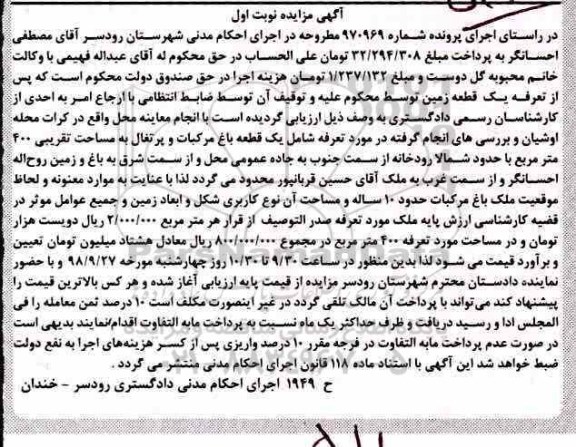 آگهی مزایده نوبت اول
در راستای اجرای پرونده شماره ۹۷۰۹۶۹ مطروحه در اجرای احکام مدنی شهرستان رودسر آقای مصطفی
احسانگر به پرداخت مبلغ ۳۲/۲۹۴/۳۰۸ تومان علی الحساب در حق محکوم له آقای عبداله فهیمی با وکالت
خانم محبوبه گل دوست و مبلغ ۱/۲۳۷/۱۳۲ تومان هزینه اجرا در حق صندوق دولت محکوم است که پس
از تعرفه یک قطعه زمین توسط محکوم علیه و توقیف آن توسط ضابط انتظامی با ارجاع امر به احدی از
کارشناسان رسمی دادگستری به وصف ذیل ارزیابی گردیده است با انجام معاینه محل واقع در کرات محله
اوشیان و بررسی های انجام گرفته در مورد تعرفه شامل یک قطعه باغ مرکبات و پرتغال به مساحت تقریبی ۴۰۰
متر مربع با حدود شمالا رودخانه از سمت جنوب به جاده عمومی محل و از سمت شرق به باغ و زمین روح‌اله
احسانگر و از سمت غرب به ملک آقای حسین قربانپور محدود می گردد لذا با عنایت به موارد معنونه و لحاظ
موقعیت ملک باغ مرکبات حدود ۱۰ ساله و مساحت آن نوع کاربری شکل و ابعاد زمین و جمیع عوامل موثر در
قضیه کارشناسی ارزش پایه ملک مورد تعرفه صدر التوصیف از قرار هر متر مربع ۲/۰۰۰/۰۰۰ ریال دویست هزار
تومان و در مساحت مورد تعرفه ۴۰۰ متر مربع در مجموع ۸۰۰/۰۰۰/۰۰۰ ریال معادل هشتاد میلیون تومان تعیین
و برآورد قیمت می شود لذا بدین منظور در ساعت ۹/۳۰ تا ۱۰/۳۰ روز چهارشنبه مورخه ۹۸/۹/۲۷ و با حضور
نماینده دادستان محترم شهرستان رودسر مزایده از قیمت پایه ارزیابی آغاز شده و هر کس بالاترین قیمت را
پیشنهاد کند می‌تواند با پرداخت آن مالک تلقی گردد در غیر اینصورت مکلف است ۱۰ درصد ثمن معامله را فی
المجلس ادا و رسید دریافت و ظرف حداکثر یک ماه نسبت به پرداخت مابه التفاوت اقدام/نمایند بدیهی است
در صورت عدم پرداخت مابه التفاوت در فرجه مقرر ۱۰ درصد واریزی پس از کسر هزینه‌های اجرا به نفع دولت
ضبط خواهد شد این آگهی با استناد ماده ۱۱۸ قانون اجرای احکام مدنی منتشر می گردد .
ح ۱۹۴۹ اجرای احکام مدنی دادگستری رودسر - خندان